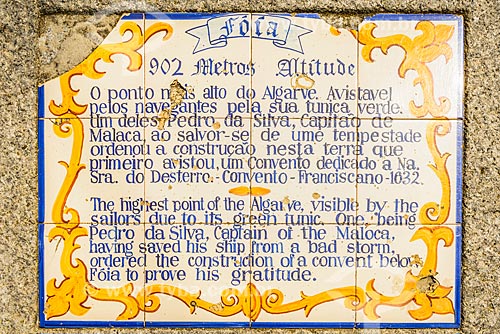 Fóia
902 Metros Altitude
O ponto mais alto do Algarve. Avistavel
pelos navegantes pela sua tunica verde.
Um deles Pedro da Silva, Capitão de
Malaca, ao salvor-se de ume tempestade
ordenou a construção nesta terra que
primeiro avistou, um Convento dedicado a Na.
Sra. do Desterro.-Convento-Franciscano-1632.
The highest point of the Algarve, visible by the
sailors due to its green tunic. One, being
Pedro da Silva, Captain of the Maloca,
having saved his ship from a bad storm,
ordered the construcion of a convent below
Fóia to prove his gratitude.